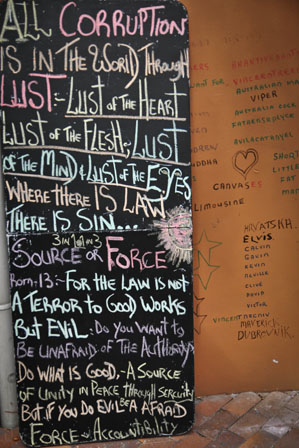 ALL CORRUPTION
IS IN THE WORLD THROUGH
LUST:- LUST OF THE HEART
LUST OF THE FLESH, LUST
OF THE MIND & LUST OF THE EYES
WHERE THERE IS LAW
THERE IS SIN...
3 IN 1 OR 1 IN 3
SOURCE OR FORCE
ROM:13:- FOR THE LAW IS NOT
A TERROR TO GOOD WORKS
BUT EVIL. DO YOU WANT TO
BE UNAFRAID OF THE AUTHORITY?
DO WHAT IS GOOD,- A SOURCE
OF UNITY IN PEACE THROUGH
BUT IF YOU DO EVIL BE AFRAID
FORCE & ACCOUNTIBILITY
WANT FOR
AUSTRALIAN
VIPER
AUSTRALIA
BUDDHA
CANVASES
LIMOUSINE
LITTLE
FAT
HRVATSKA..
ELVIS.
CALVIN
GAVIN
KEVIN
CLIVE
DAVID
VICTOR
VINCENT
MAVERICK
DUBROVNIK..